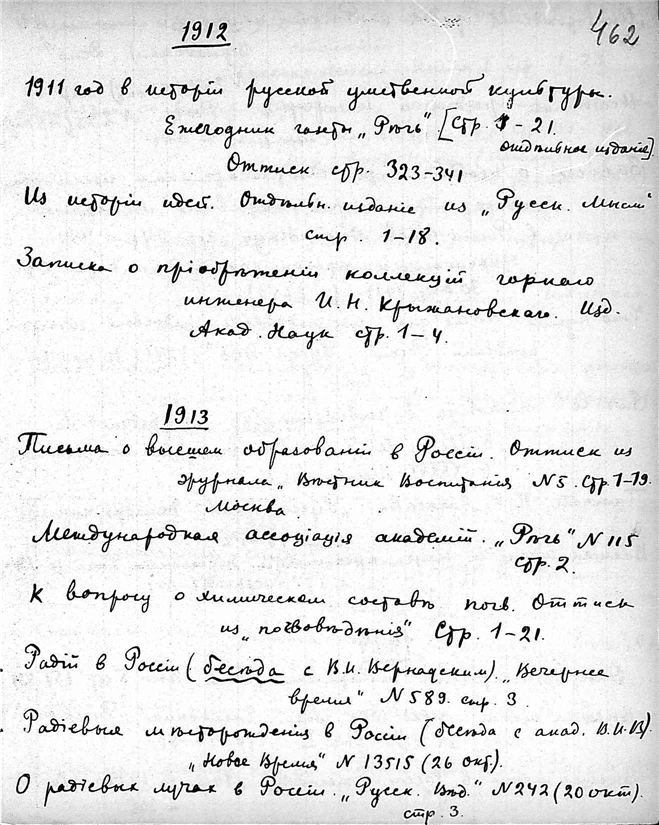 462
1912
1911 год в исторiи русской умственной культуры.
Ежегодник газеты „Рѣчь". [Стр. 1-21.
отдѣльное изданiе].
Оттиск стр. 323-341
Из исторiи идей. Отдѣльн. изданiе из „Русск. Мысли"
стр. 1-18.
Записка о прiобрѣтенiи коллекцiй горнаго
инженера И. Н. Крыжановскаго. Изд.
Акад. Наук стр. 1-4.
1913
Письма о высшем образованiи в Россiи. Оттиск из
журнала „Вѣстник Воспитанiя N5. Стр. 1-19.
Москва
Международная ассоцiацiя академiй. „Рѣчь" N 115
стр. 2.
К вопросу о химическом составѣ почв. Оттиск
из „почвовѣдѣнiя" Стр. 1-21.
Радiй в Россiи (бесѣда с В.И. Вернадским). „Вечернее
время" N 589. стр. 3.
Радiевыя мѣсторожденiя в Россiи (бесѣда с акад. В.И.В).
„Новое Время" N 13515 (26 окт).
О радiевых лучах в Россiи. „Русск. Вѣд." N242 (20 окт).
стр. 3.